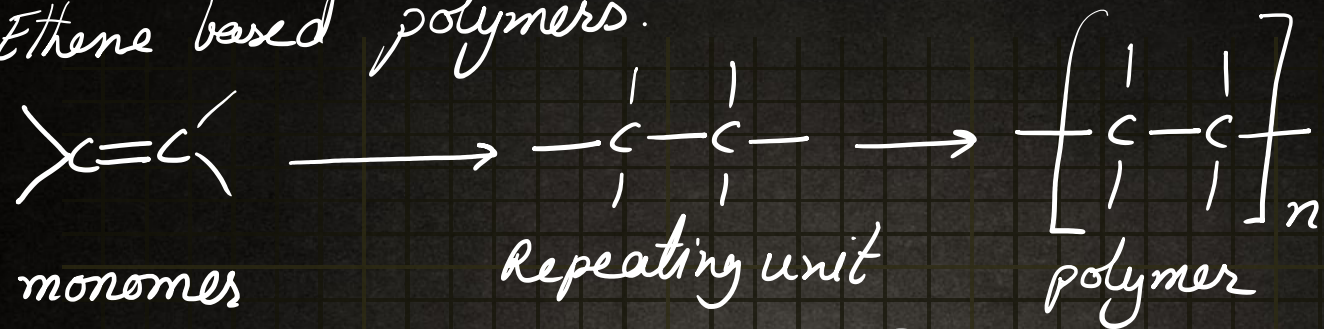 Ethene based polymers.
C=C
—C—C—
[C—C]n
monomes
Repeating unit
polymer